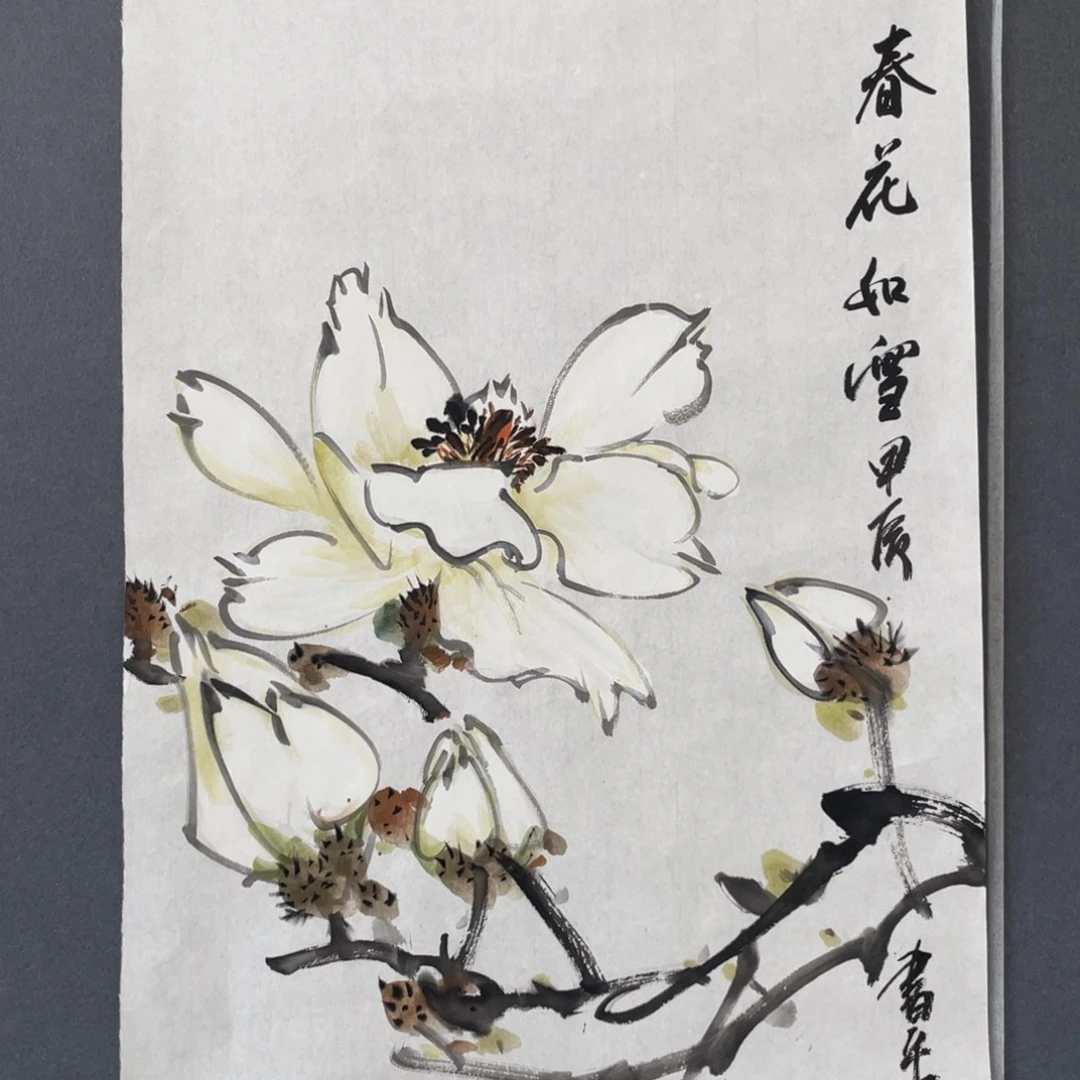 春花如雪甲辰
書